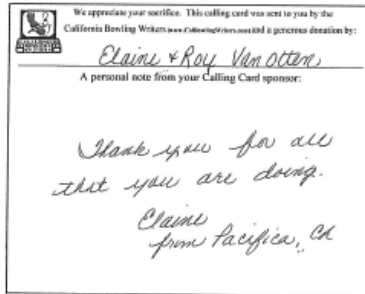 We appreciate your sacrifice. This calling card was sent to you by the
California Bowling Writers (www.CalBowlingWriters.com) and a generous donation by:
Elaine & Roy Van Otten
A personal note from your Calling Card sponsor:
Thank you for all
that you are doing.
Elaine
from Pacifica, CA